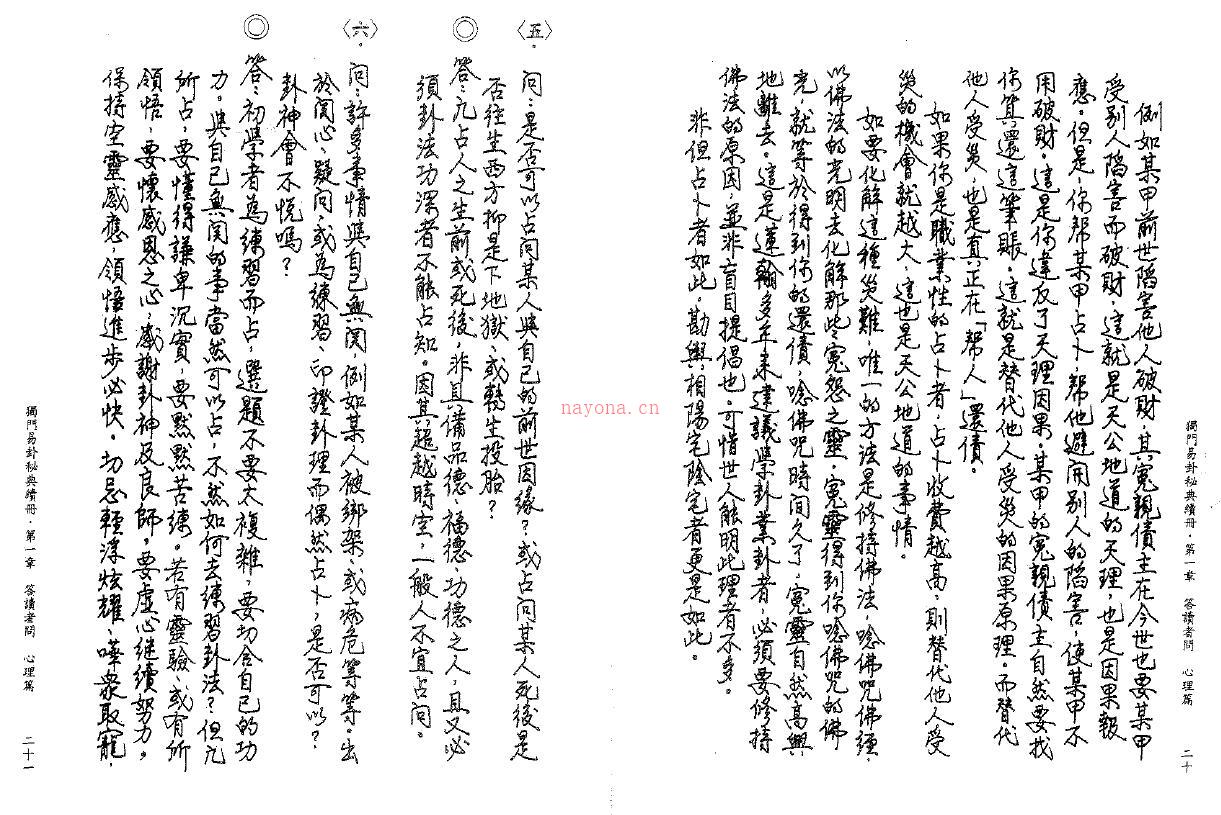 例如某甲前世陷害他人破財，其冤親債主在今世也要某甲
受別人陷害而破財，這就是天公地道的天理，也是因果報
應。但是，你幫某甲占卜，幫他避開別人的陷害，使某甲不
用破財，這是你違反了天理因果。某甲的冤親債主自然要找
你算還這筆賬。這就是替代他人受災的因果原理。而替代
他人受災，也是真正在「幫人」還債。
如果你是職業性的占卜者，占卜收費越高，則替代他人受
災的機會就越大，這也是天公地道的事情。
如要化解這種災難，唯一的方法是修持佛法，唸佛咒佛經，
以佛法的光明去化解那些冤怨之靈，冤靈得到你唸佛咒的佛
光，就等於得到你的還債，唸佛咒時間久了，冤靈自然高興
地離去。這是蓮翰多年來建議學卦業卦者，必須要修持
佛法的原因，並非盲目提倡也。可惜世人能明此理者不多。
非但占卜者如此，勘輿，相陽宅陰宅者更是如此。
獨門易卦秘典續冊．第一章 答讀者問 心理篇 二十
〈五〉．
問：是否可以占問某人與自己的前世因緣？或占問某人死後是
否往生西方抑是下地獄、或轉生投胎？
◎
答：凡占人之生前或死後，非具備品德、福德、功德之人，且又必
須卦法功深者不能占知。因其超越時空，一般人不宜占問。
〈六〉．
問：許多事情與自己無関，例如某人被綁架、或病危等等。出
於関心、疑问、或為練習、印證卦理而偶然占卜，是否可以？
卦神會不悦嗎？
◎
答：初學者為練習而占，選題不要太複雜，要切合自己的功
力。與自己無関的事當然可以占，不然如何去練習卦法？但凡
所占，要懂得謙卑沉實，要默默苦練。若有靈驗、或有所
領悟，要懷感恩之心，感謝卦神及良師。要虛心継續努力。
保持空靈感應，領悟進步必快。切忌輕浮炫耀、嘩衆取寵，
獨門易卦秘典續冊．第一章 答讀者問 心理篇 二十一
nayona.cn